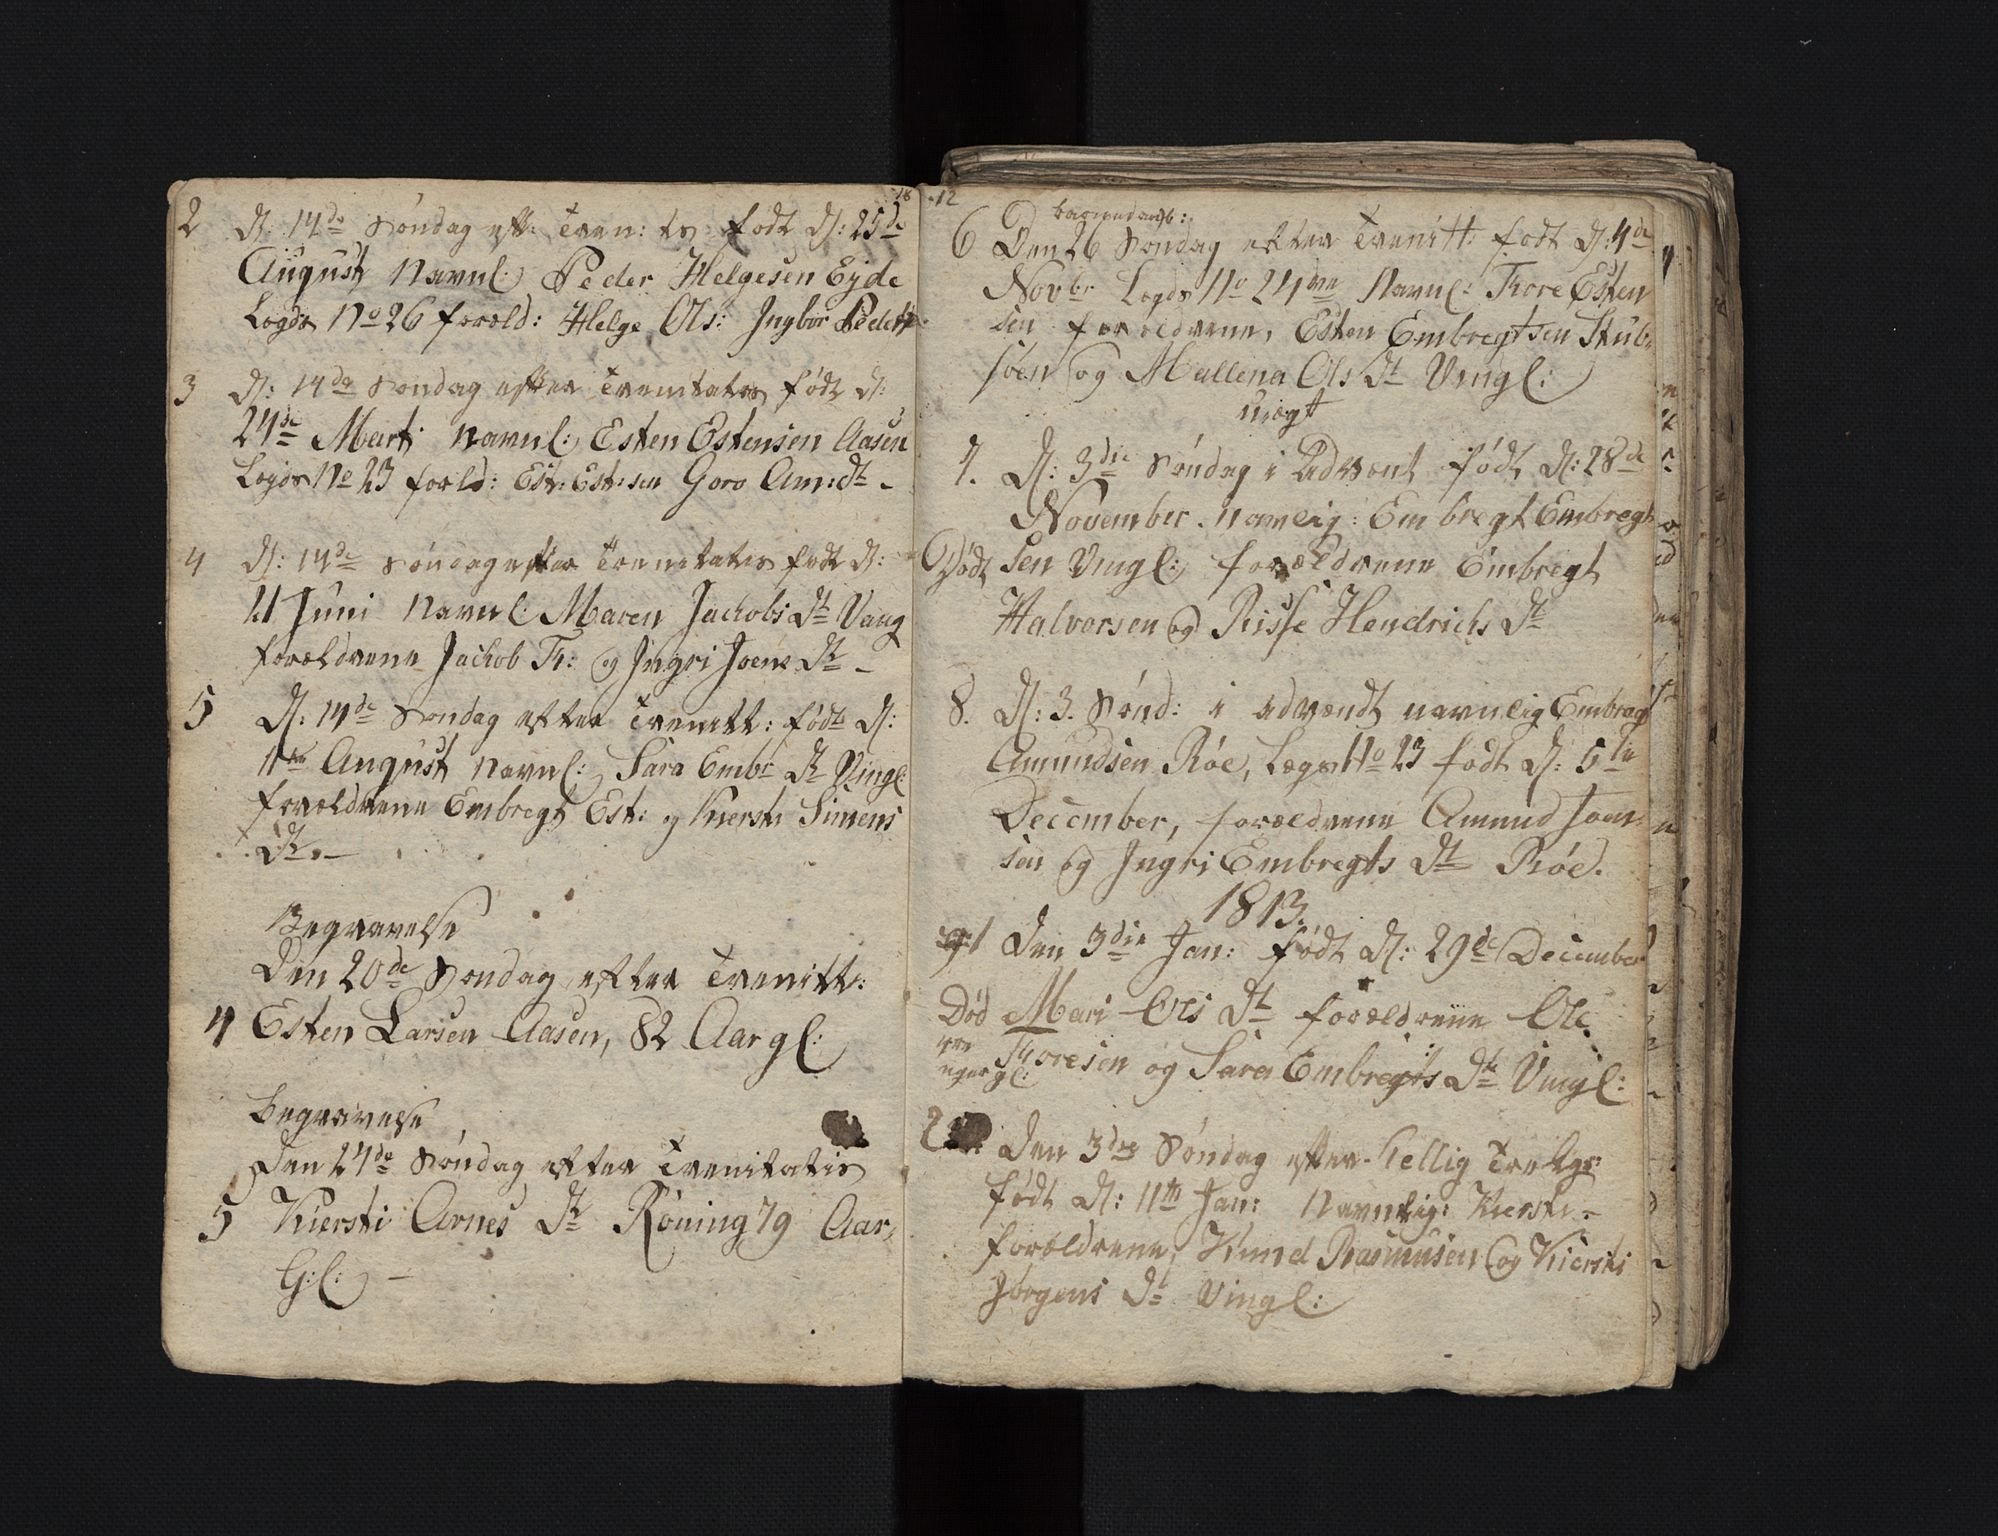 18
2 D: 14de Søndag eft: Tren: ts født D: 25de
August Navnl: Peder Helgesen Eyde
Legds No 26 foræld: Helge Ols: Ingbor Peders
3 D: 14de Søndag efter Trenitatis født d:
24de Marti navnl: Esten Estensen Aasen
Legds No 23 forld: Est: Est:sen Goro Am: dt -
4 D: 14de Søndag efter Trenitatis født d:
11 Juni navnl: Maren Jachobs Dt Vang
forældrene Jachob Th: og Ingri Joens Dt -
5 D: 14de Søndag efter Trenitt: født D:
11te August navnl: Sara Embr Dt Vingl:
forældrene Embregt Est: og Kiersti Simens
Dt. -
Begravelse
Den 20de Søndag efter Trenitt:
4 Esten Larsen Aasen, 82 Aar gl:
Begravelse
Den 24de Søndag efter Trenitatis
5 Kiersti Arnes Dt Røning 79 Aar
G:l: -
12
6 Den 26 Søndag efter Trenitt: født D: 4de
Novbr Legds No 24 Navnl: Thore Esten
sen forældrene, Esten Embregtsen Stub
søen og Mallena Ols Dt Vingl:
uægt
7. D: 3die Søndag i Advent født D: 28de
November. navnlig: Embregt Embregt
Død sen Vingl: forældrene Embregt
Halvorsen og Risse Hendrichs Dt
8. D: 3. Sønd: i advendt navnlig Embregt
Amundsen Røe, Legds No 23 født D: 5te
December, forældrene Amund Joen
sen og Ingri Embregts Dt Røe.
1813.
1 Den 3die Jan: født D: 29de December
Død Mari Ols Dt forældrene Ole
Thoresen og Sara Embregts Dt Vingl:
2 Den 3die Søndag efter hellig Trekgs:
født D: 11te Jan: Navnlig: Kiersti -
forældrene, Knud Rasmusen og Kiersti
Jørgens Dt Vingl: